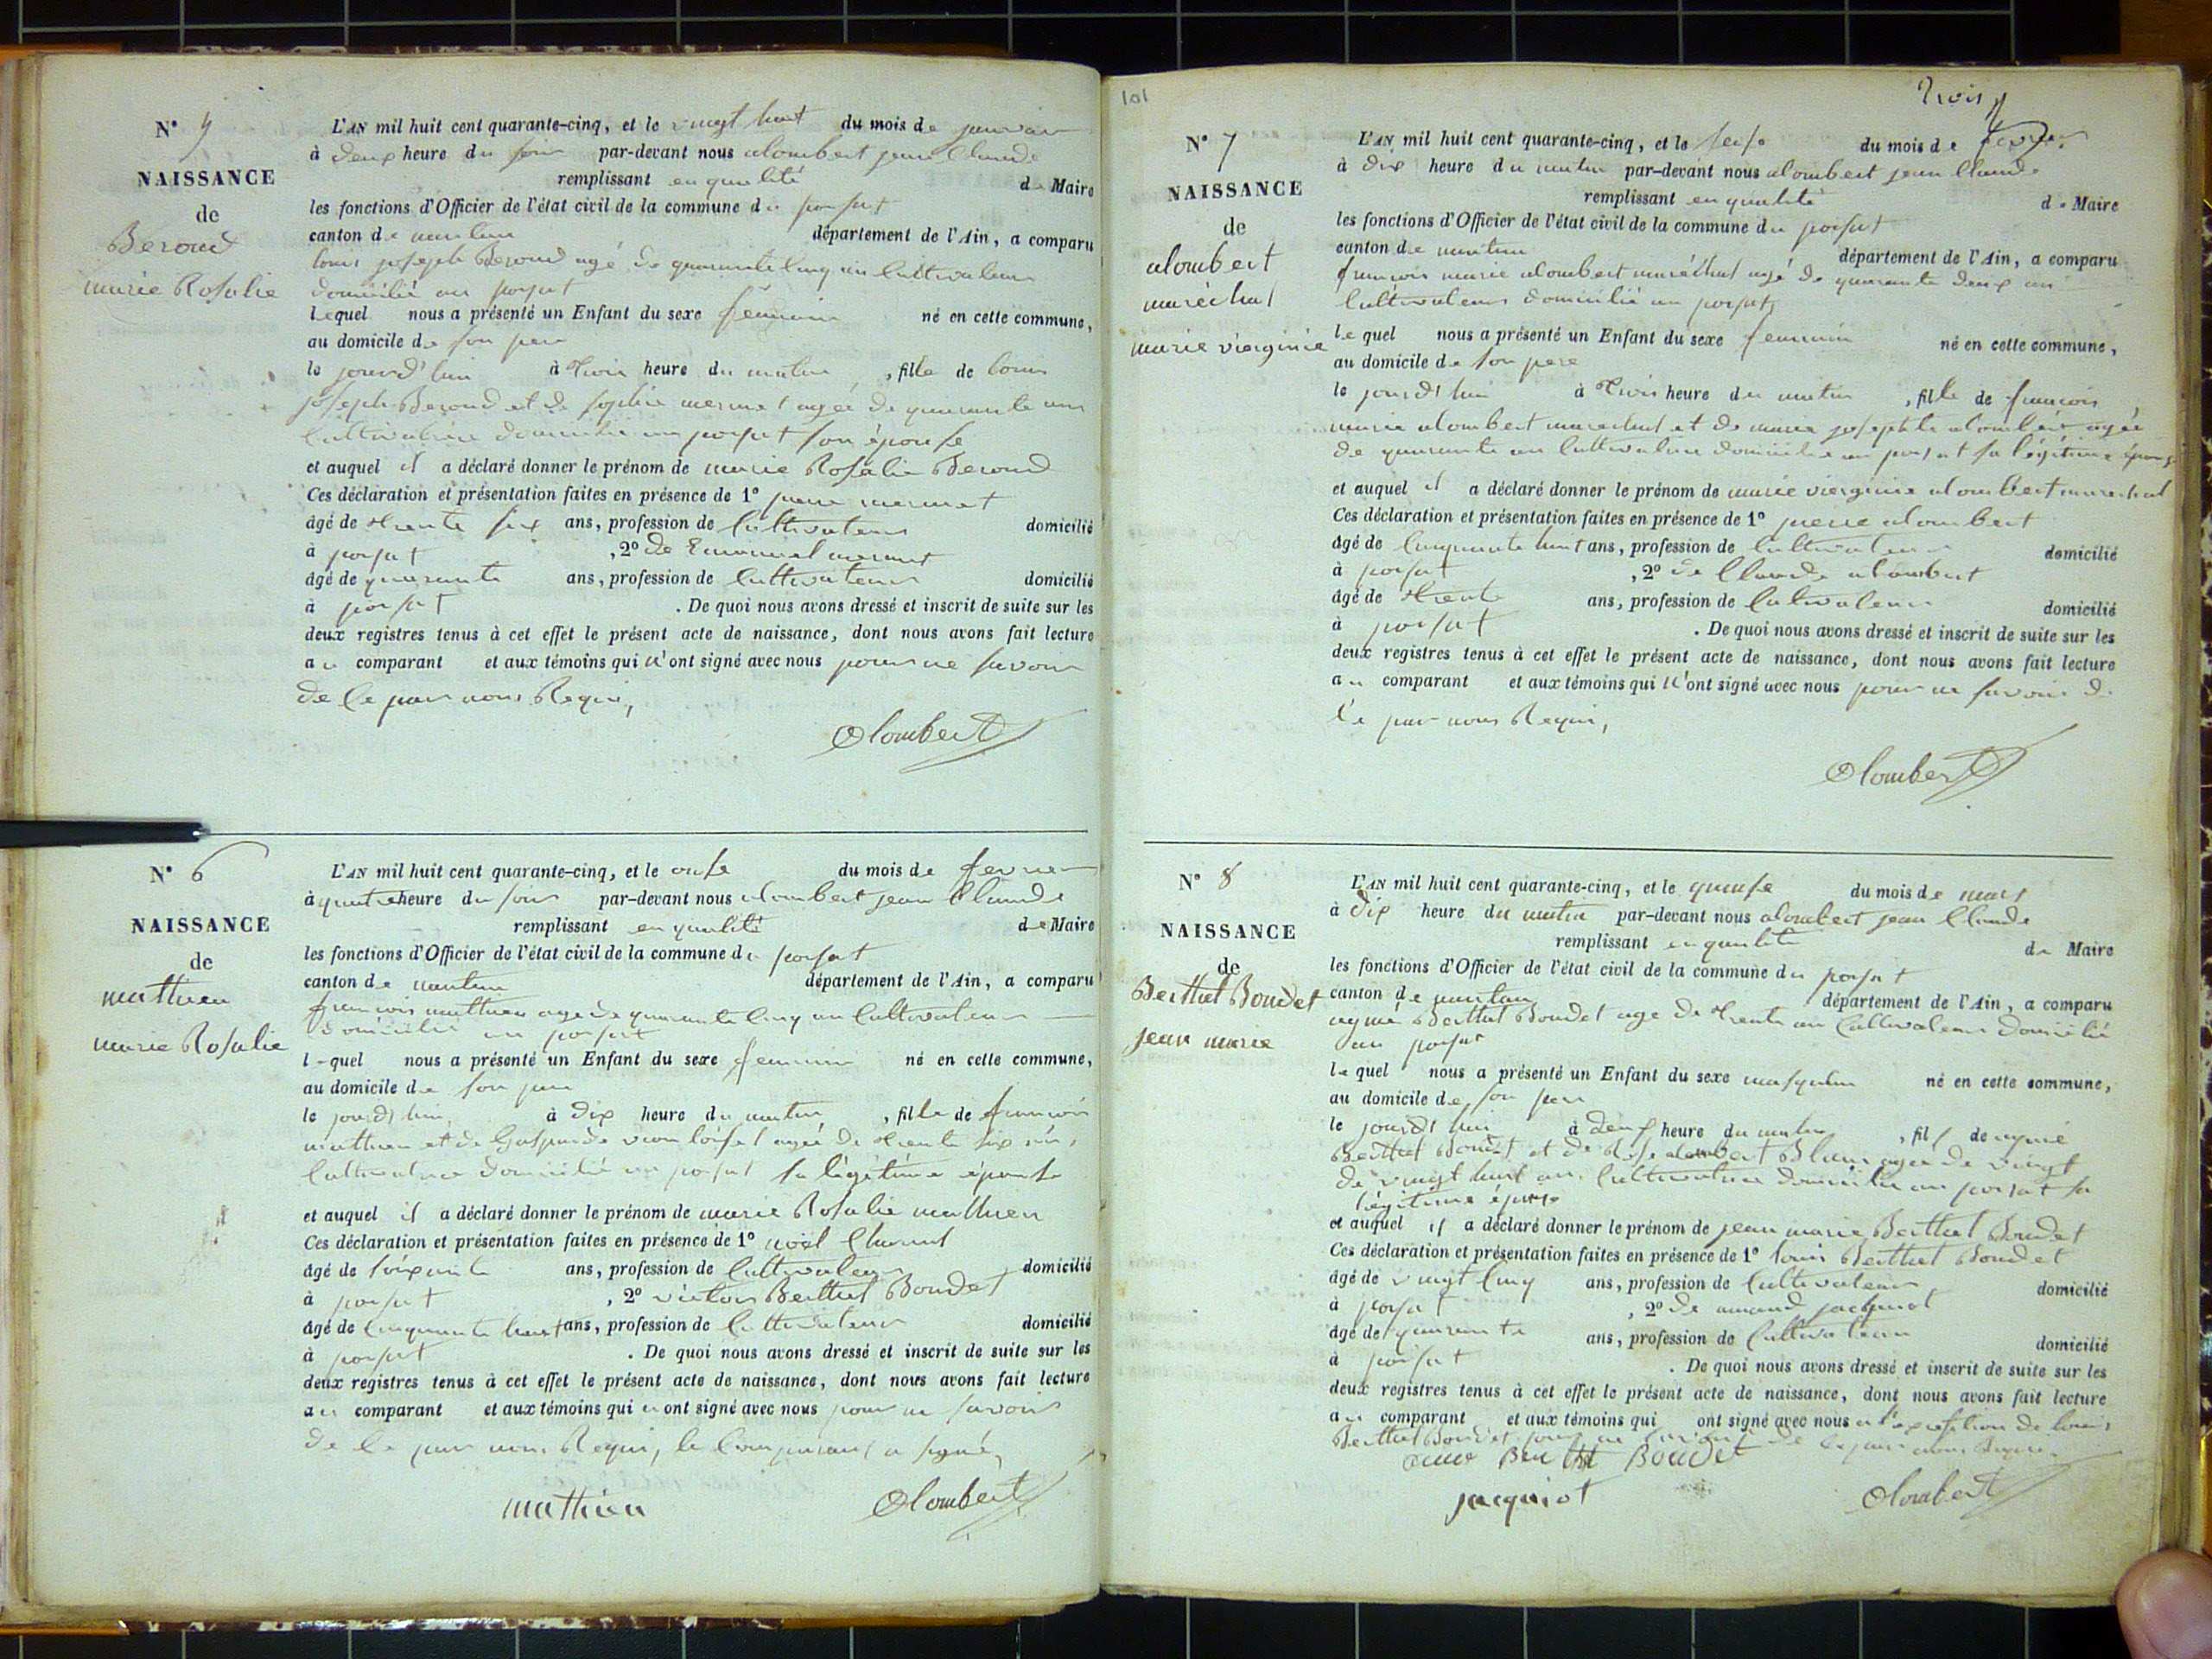 N° 5
NAISSANCE
de
Beroud
marie Rosalie
L'AN mil huit cent quarante-cinq, et le vingt huit du mois de janvier
à deux heure du soir par-devant nous alombert jean Claude
remplissant en qualité de Maire
les fonctions d'Officier de l'état civil de la commune du poisat
canton de nantua département de l'Ain, a comparu
louis joseph Beroud agé de quarante cinq an Cultivateur
domicilié au poisat
Lequel nous a présenté un Enfant du sexe feminin né en cette commune,
au domicile de son pere
le jourd'hui à trois heure du matin, fille de louis
joseph Beroud et de sophie mermet agée de quarante ans
Cultivatrice domicilié au poisat son épouse
et auquel il a déclaré donner le prénom de marie Rosalie Beroud
Ces déclaration et présentation faites en présence de 1° mermet
âgé de trente six ans, profession de Cultivateur domicilié
à poisat, 2° de Emanuel mermet
âgé de quarante ans, profession de Cultivateur domicilié
à poisat. De quoi nous avons dressé et inscrit de suite sur les
deux registres tenus à cet effet le présent acte de naissance, dont nous avons fait lecture
au comparant et aux témoins qui n'ont signé avec nous pour ne savoir
de Ce par nous Requi,
alombert
N° 6
NAISSANCE
de
mathieu
marie Rosalie
L'AN mil huit cent quarante-cinq, et le onse du mois de fevrier
à quatre heure du soir par-devant nous alombert jean Claude
remplissant en qualité de Maire
les fonctions d'Officier de l'état civil de la commune du poisat
canton de nantua département de l'Ain, a comparu
francois mathieu age de quarante cinq an Cultivateur
domicilié au poisat
lequel nous a présenté un Enfant du sexe feminin né en cette commune,
au domicile de son pere
le jourd'hui à dix heure du matin, fille de francois
mathieu et de Gasparde agée de trente six ans,
Cultivatrice domicilié au poisat sa légitime épouse
et auquel il a déclaré donner le prénom de marie Rosalie mathieu
Ces déclaration et présentation faites en présence de 1° noël
âgé de soixante ans, profession de Cultivateur domicilié
à poisat, 2° victor Berthet Boudet
âgé de Cinquante huit ans, profession de Cultivateur domicilié
à poisat. De quoi nous avons dressé et inscrit de suite sur les
deux registres tenus à cet effet le présent acte de naissance, dont nous avons fait lecture
au comparant et aux témoins qui n ont signé avec nous pour ne savoir
de Ce par nous Requi, le Comparant a signé,
mathieu alombert
101
trois
N° 7
NAISSANCE
de
alombert
maréchal
marie vierginie
L'AN mil huit cent quarante-cinq, et le seise du mois de fevrier
à dix heure du matin par-devant nous alombert jean Claude
remplissant en qualité de Maire
les fonctions d'Officier de l'état civil de la commune du poisat
canton de nantua département de l'Ain, a comparu
francois marie alombert maréchal agé de quarante deux an
Cultivateur domicilié au poisat
lequel nous a présenté un Enfant du sexe feminin né en cette commune,
au domicile de son pere
le jourd'hui à trois heure du matin, fille de francois
marie alombert marechal et de marie josephte alombert agée
de quarante an Cultivatrice domicilié au poisat sa légitime épouse
et auquel il a déclaré donner le prénom de marie vierginie alombert marechal
Ces déclaration et présentation faites en présence de 1° pierre alombert
âgé de Cinquante huit ans, profession de Cultivateur domicilié
à poisat, 2° de Claude alombert
âgé de trente ans, profession de Cultivateur domicilié
à poisat. De quoi nous avons dressé et inscrit de suite sur les
deux registres tenus à cet effet le présent acte de naissance, dont nous avons fait lecture
au comparant et aux témoins qui n'ont signé avec nous pour ne savoir de
Ce par nous Requi,
alombert
N° 8
NAISSANCE
de
Berthet Boudet
jean marie
L'AN mil huit cent quarante-cinq, et le quinse du mois de mars
à dix heure du matin par-devant nous alombert jean Claude
remplissant en qualité de Maire
les fonctions d'Officier de l'état civil de la commune du poisat
canton de nantua département de l'Ain, a comparu
aymé Berthet Boudet age de trente an Cultivateur domicilié
au poisat
lequel nous a présenté un Enfant du sexe masqulin né en cette commune,
au domicile de son pere
le jourd'hui à deux heure du matin, fils de aymé
Berthet Boudet et de Rose alombert Blanc agée de vingt
de vingt huit an Cultivatrice domicilié au poisat sa
légitime épouse
et auquel il a déclaré donner le prénom de jean marie Berthet Boudet
Ces déclaration et présentation faites en présence de 1° louis Berthet Boudet
âgé de vingt Cinq ans, profession de Cultivateur domicilié
à poisat, 2° de amand jacquiot
âgé de quarante ans, profession de Cultivateur domicilié
à poisat. De quoi nous avons dressé et inscrit de suite sur les
deux registres tenus à cet effet le présent acte de naissance, dont nous avons fait lecture
au comparant et aux témoins qui ont signé avec nous a l'exception de louis
Berthet Boudet pour ne savoir de Ce par nous Requi
Berthet Boudet
jacquiot alombert